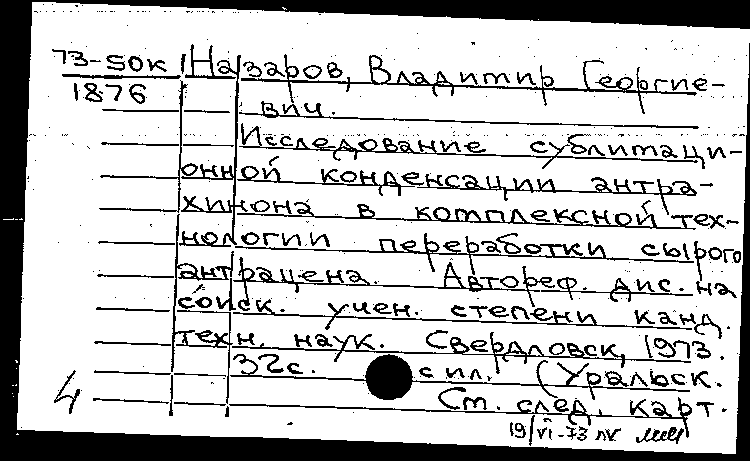 73-50K Назаров, Владимир Георгие-
1876 вич.
Исследование сублимаци-
онной конденсации антра-
хинона в комплексной тех-
нологии переработки сырого
антрацена. Автореф. дис. на
соиск. учен. степени канд.
техн. наук. Свердловск, 1973.
32с. с ил. (Уральск.
4 См. след. карт.
19/VI-73